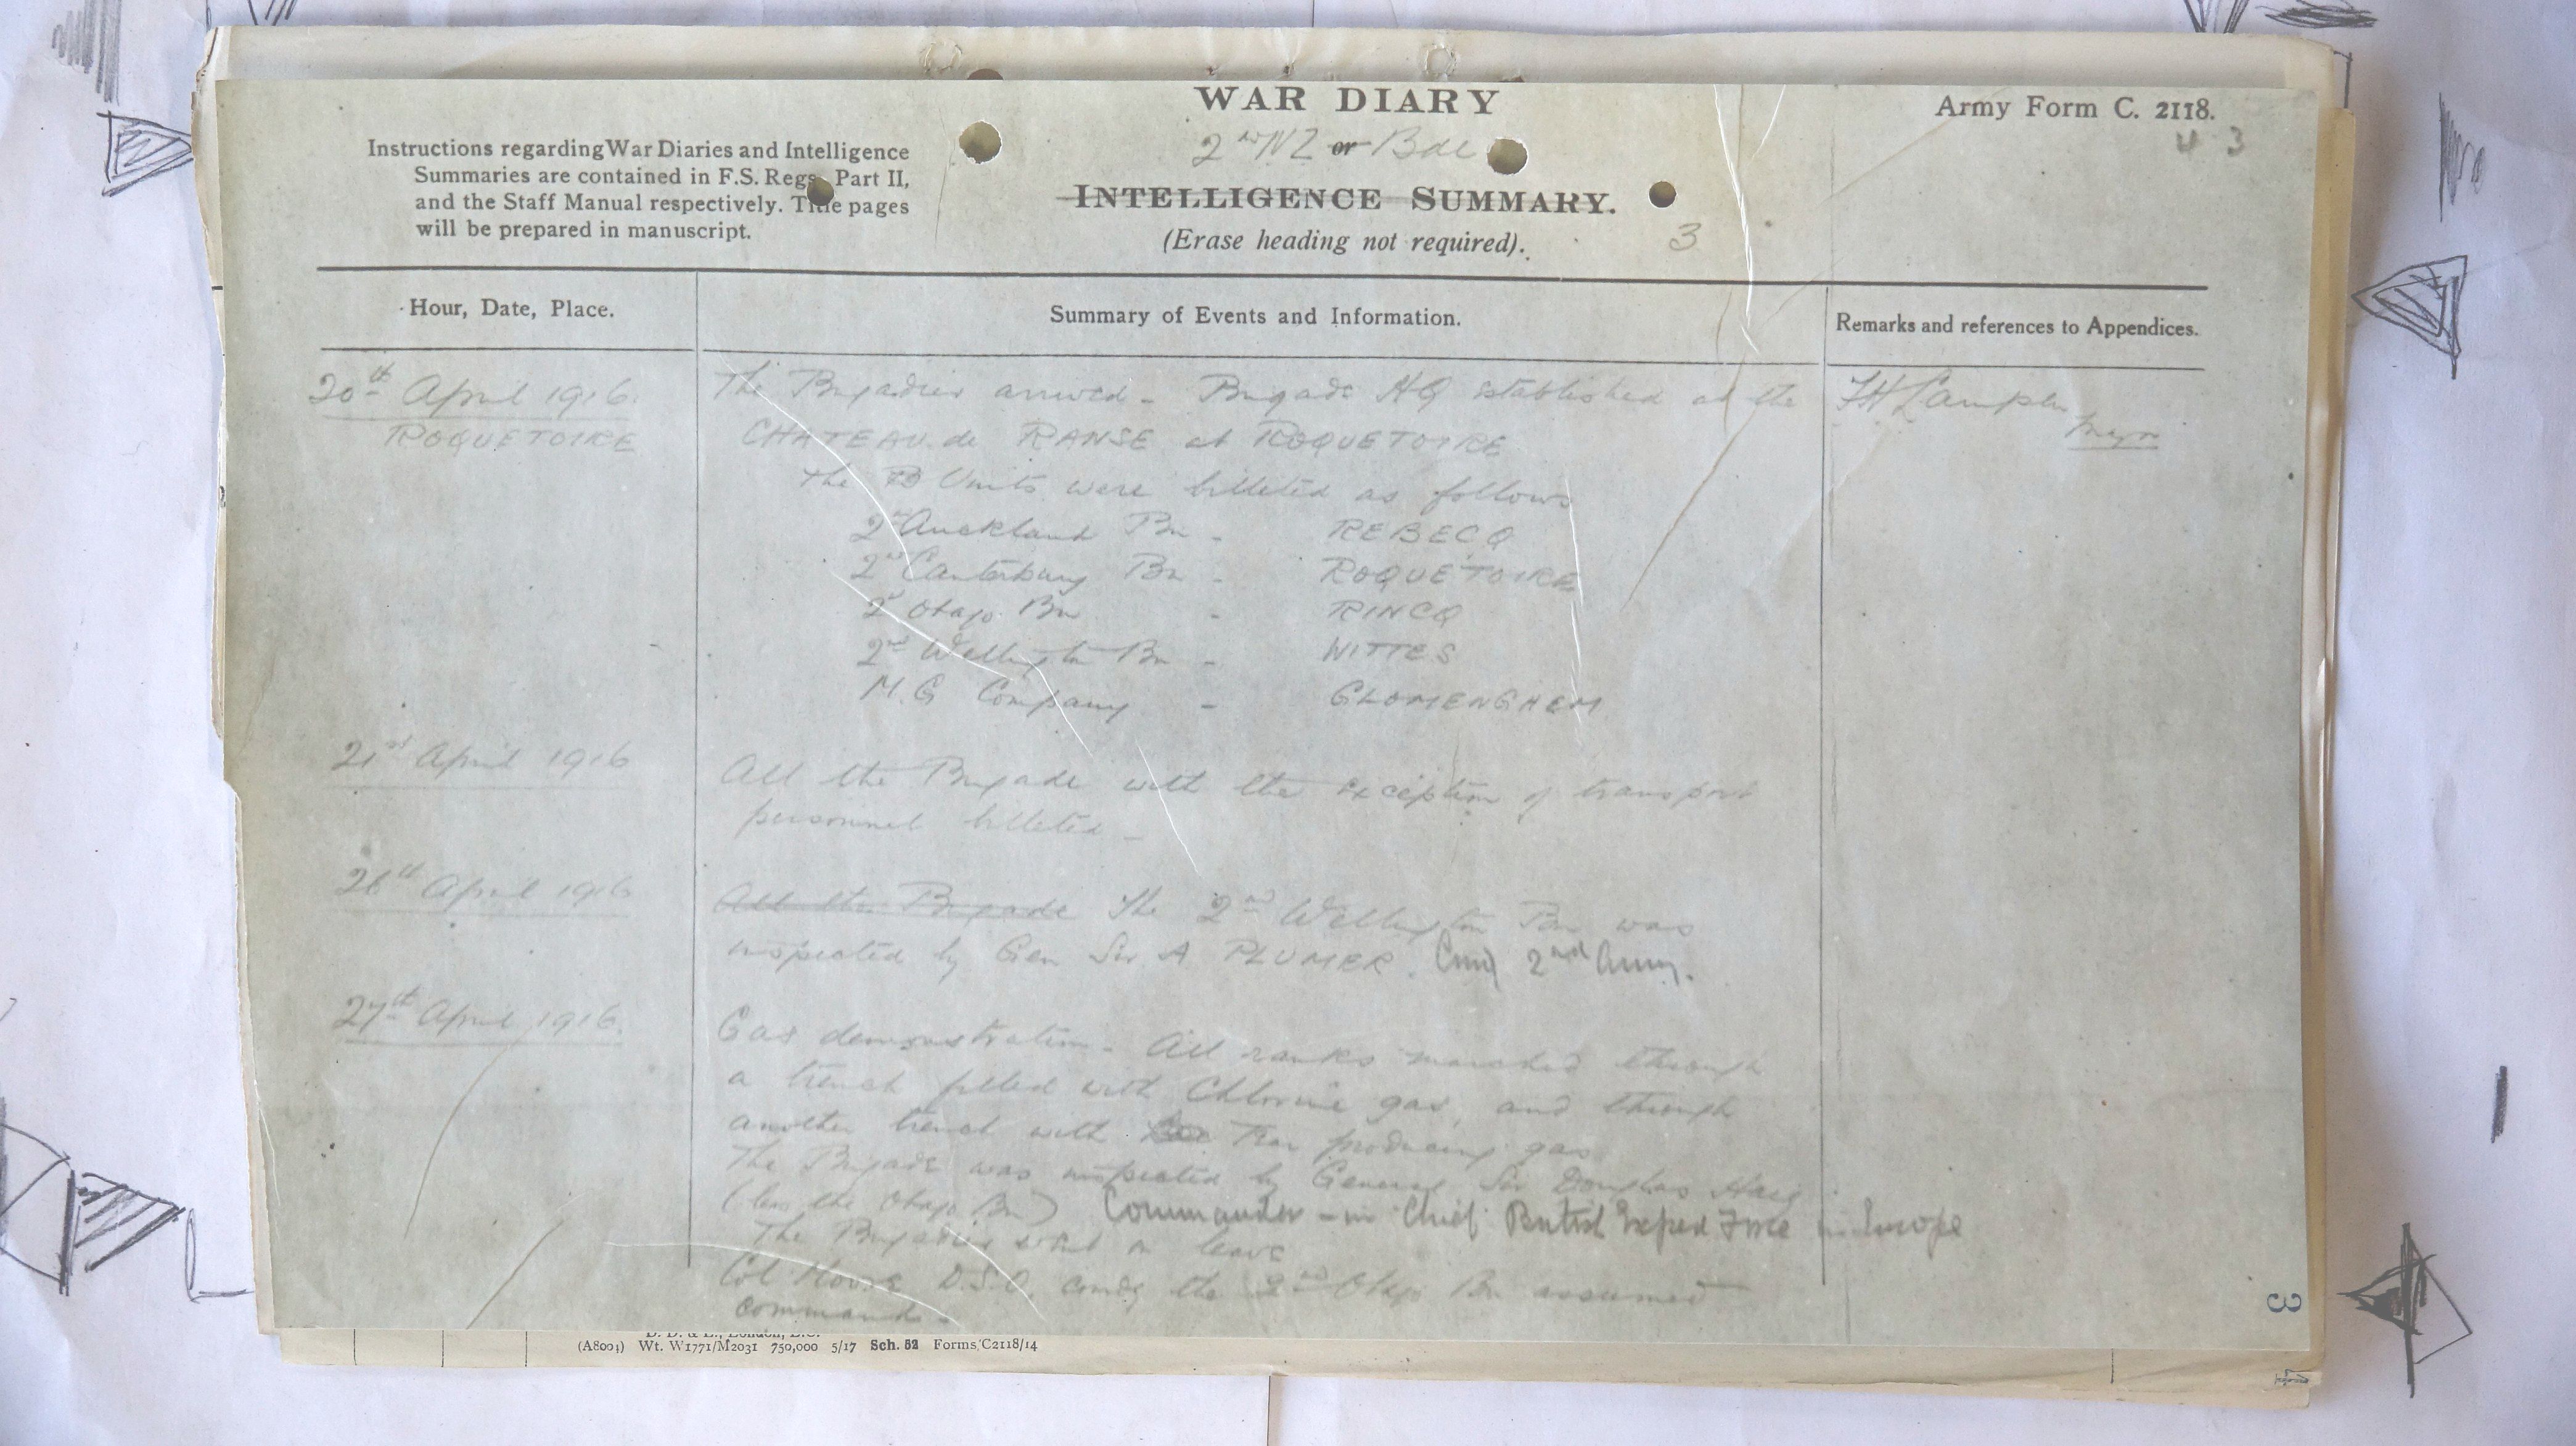 WAR DIARY
2nd NZ or Bde
INTELLIGENCE SUMMARY.
(Erase heading not required).
Army Form C. 2118.
4 3
3
Instructions regarding War Diaries and Intelligence
Summaries are contained in F.S. Regs., Part II,
and the Staff Manual respectively. Title pages
will be prepared in manuscript.
Hour, Date, Place.
Summary of Events and Information.
Remarks and references to Appendices.
20th April 1916.
ROQUETOIRE
The Brigadier arrived - Brigade HQ established at the
CHATEAU de RANSE at ROQUETOIRE
The Units were billeted as follows
2nd Auckland Bn - REBECQ
2nd Canterbury Bn - ROQUETOIRE
2nd Otago Bn - RINCQ
2nd Wellington Bn - WITTES
M.G Company - GLOMENGHEM
Major
21st April 1916
All the Brigade with the exception of transport
personnel billeted -
26th April 1916
All the Brigade The 2nd Wellington Bn was
inspected by Gen Sir A PLUMER. Cmdg 2nd Army.
27th April 1916.
Gas demonstration - All ranks marched through
a trench filled with Chlorine gas, and through
another trench with Tear producing gas
The Brigade was inspected by General Sir Douglas Haig
(less the Otago Bn) Commander-in-Chief British Exped Force in Europe
The Brigadier went on leave
Col Moore D.S.O. comdg the 2nd Otago Bn assumed
command -
3
(A8004) Wt. W1771/M2031 750,000 5/17 Sch. 52 Forms/C2118/14